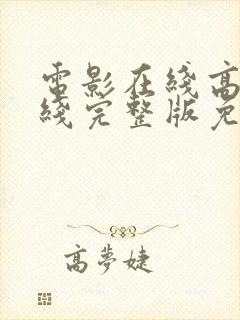 電影在綫高
綫完整版免
高夢婕